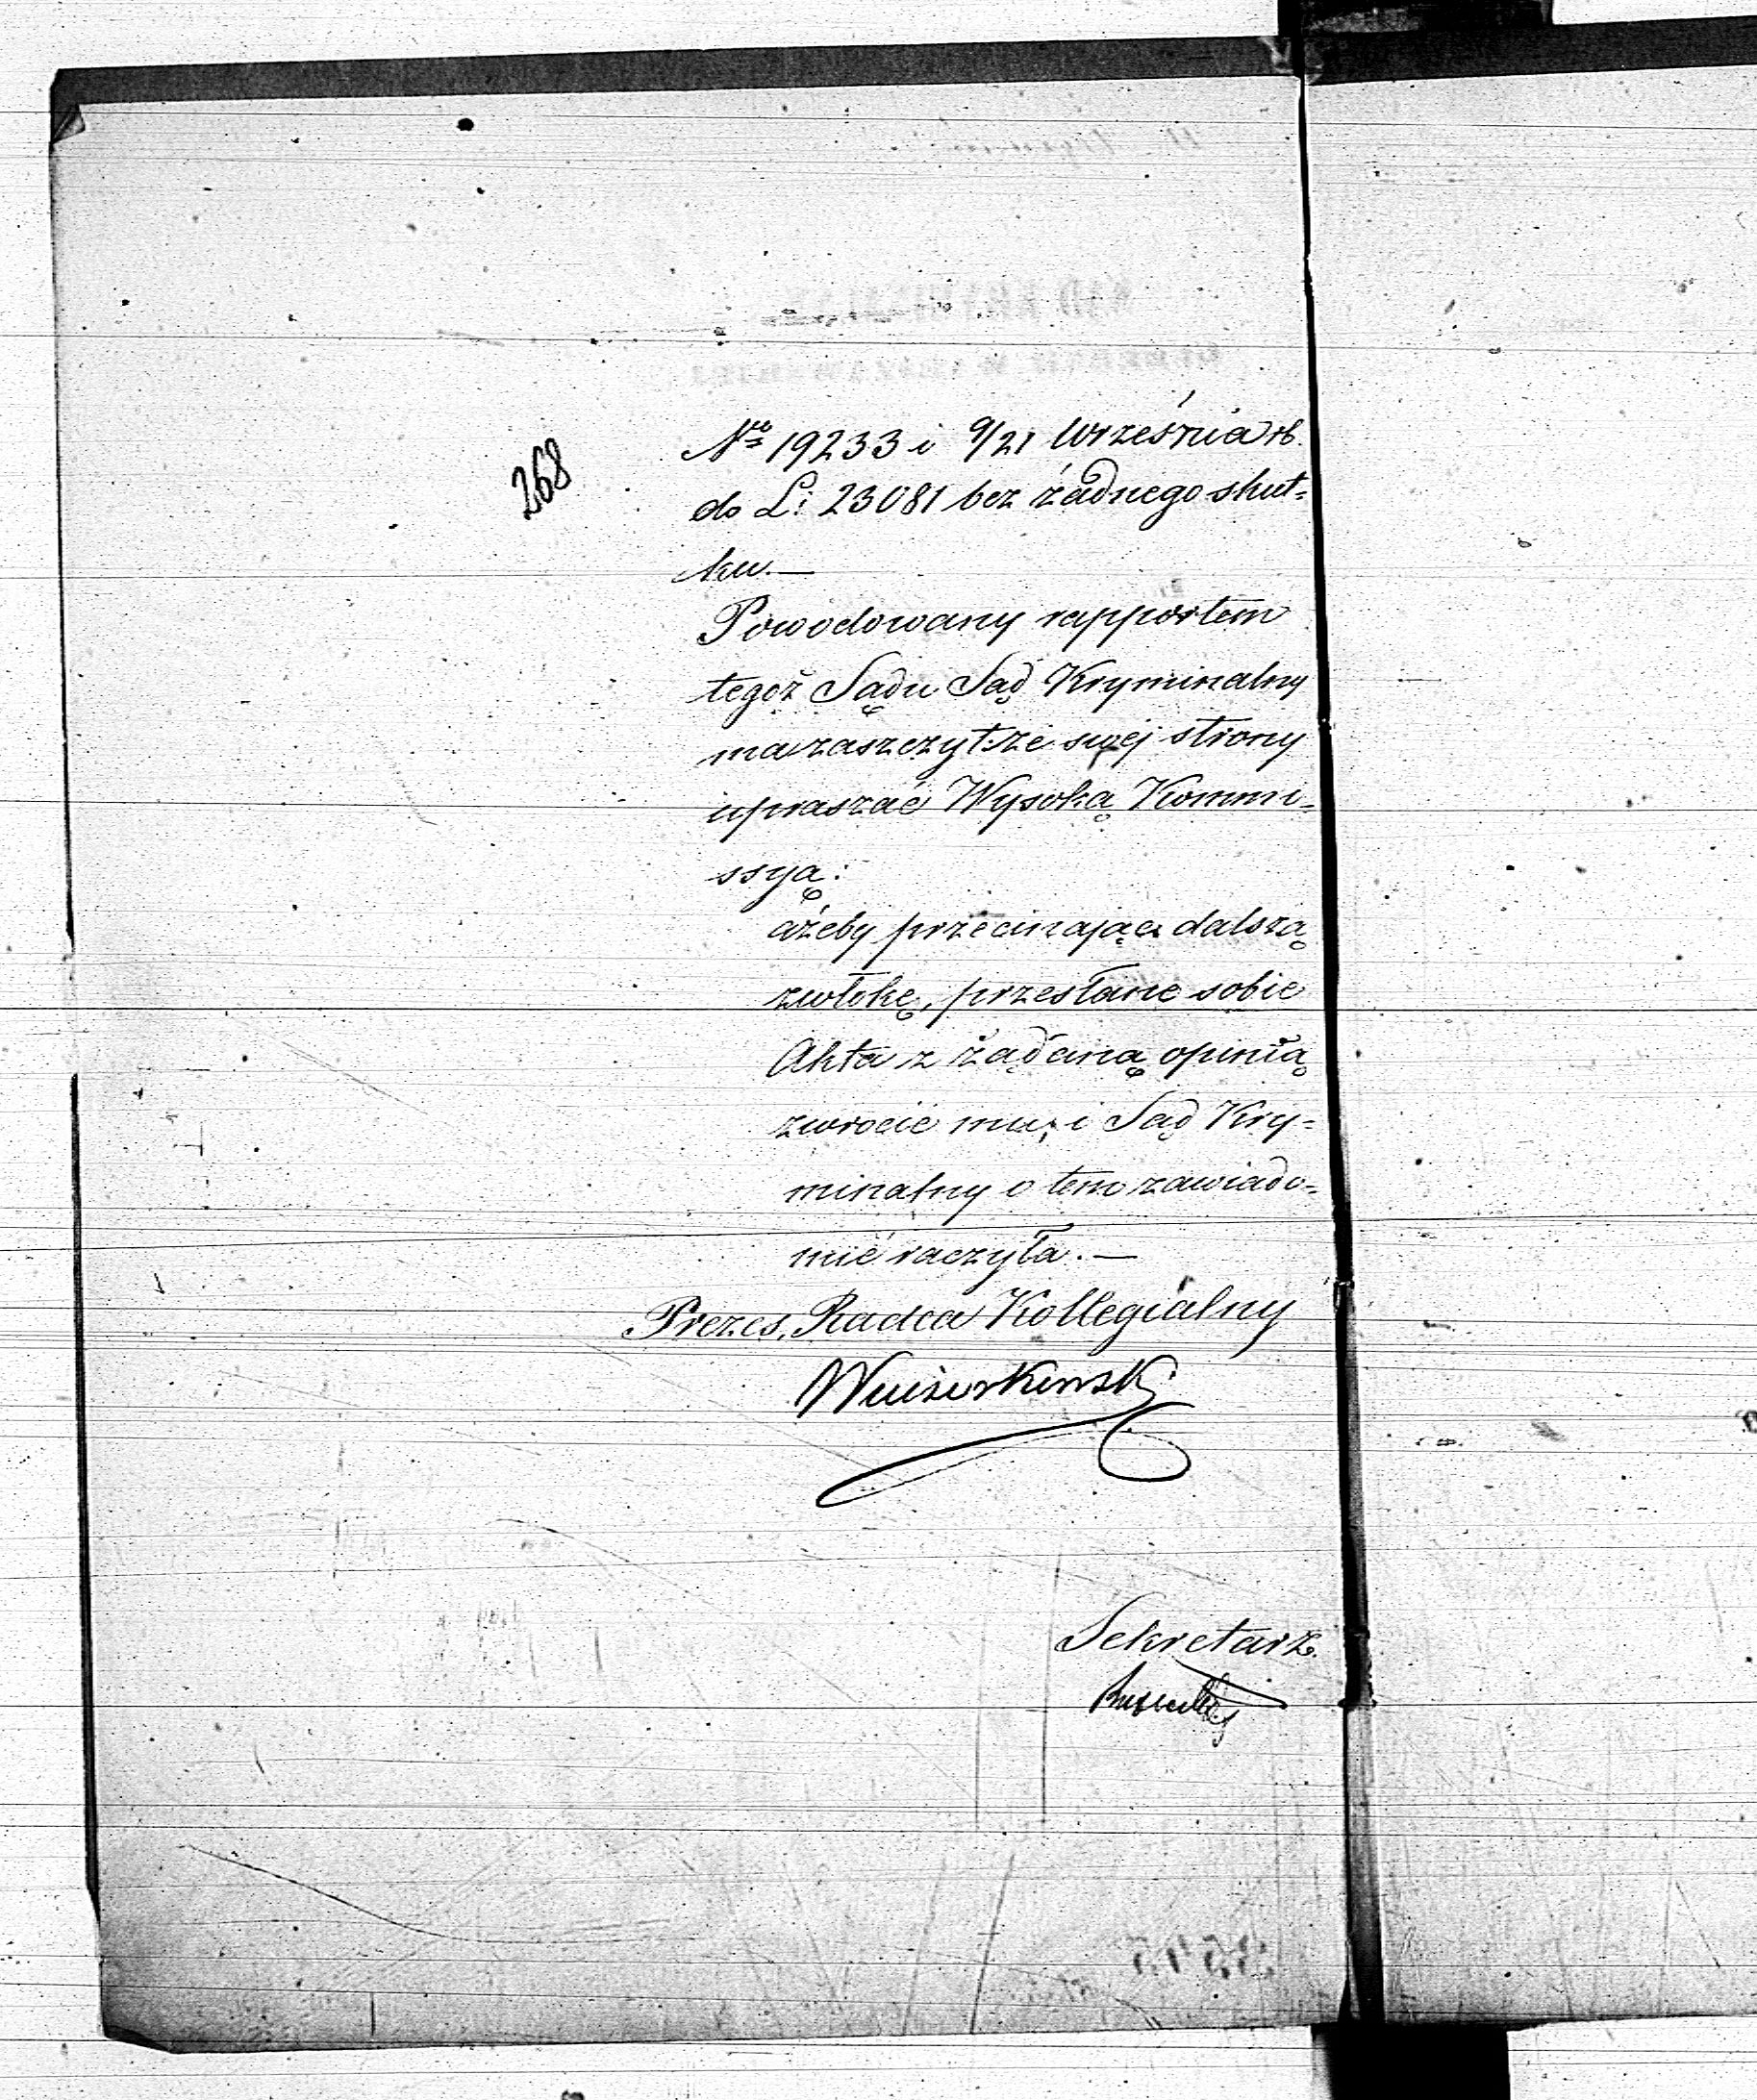 268
Nro 19233 i 9/21 Września rb.
do L: 23081 bez żadnego skut=
ku.—
Powodowany rapportem
tegoż Sądu Sąd Kryminalny
ma zaszczyt ze swej strony
upraszać Wysoką Kommi=
ssyą:
ażeby przecinając dalszą
zwłokę, przesłane sobie
Akta z żądaną opinią
zwrocić mu, i Sąd Kry=
minalny o tem zawiado=
mić raczyła.—
Prezes, Radca Kollegialny
Sekretarz